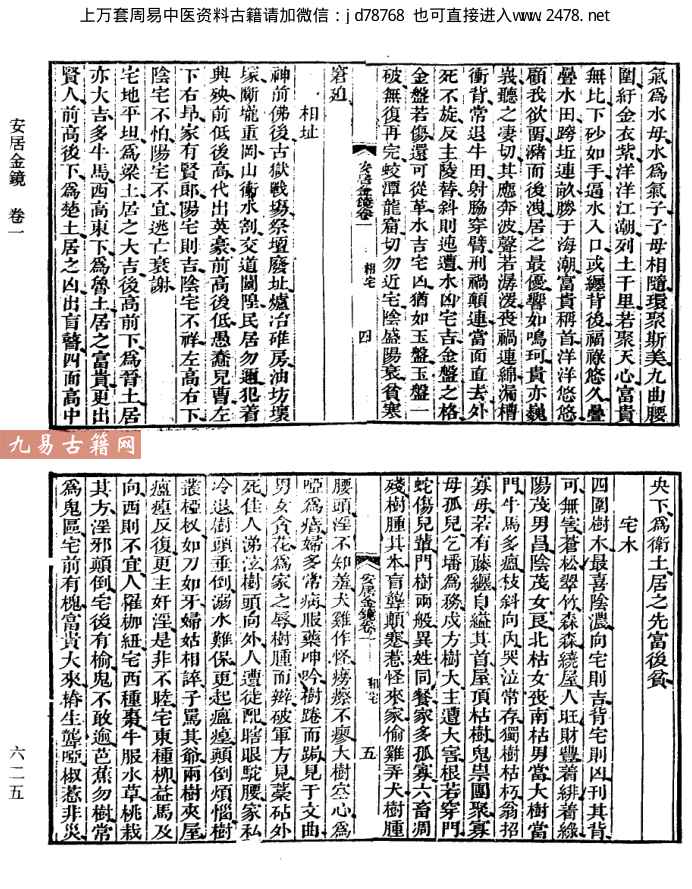 上万套周易中医资料古籍请加微信：jd78768 也可直接进入www.2478.net
安居金鏡 卷一
氣爲水母水爲氣子子母相隨環聚斯美九曲腰
圍紆金衣紫洋洋江潮列土千里若聚天心富貴
無比下砂如手逼水入口或纏背後福祿悠久疊
疊水田跨坵連畝勝于海潮富貴稱首洋洋悠悠
顧我欲畱瀦而後洩居之最優響如鳴珂貴亦巍
峩聽之凄切其應奔波聲若潺湲喪禍連綿漏槽
衝背常退牛田射脇穿臂刑禍顛連當面直去外
死不旋反主陵替斜則迍邅水凶宅吉金盤之格
金盤若傷還可從革水吉宅凶猶如玉盤玉盤一
破無復再完蛟潭龍窟切勿近宅陰盛陽衰貧寒
安居金鏡卷一 相宅 四
窘迫
相址
神前佛後古獄戰場祭壇廢址爐冶碓房油坊壞
塚斷壠重岡山衝水割交道闠隍民居勿邇犯着
興殃前低後高代出英豪前高後低愚喬兒曹左
下右昂家有賢郎陽宅則吉陰宅不祥左高右下
陰宅不怕陽宅不宜逃亡衰謝
宅地平坦爲梁土居之大吉後高前下爲晉土居
亦大吉多牛馬西高東下爲魯土居之富貴更出
賢人前高後下爲楚土居之凶出盲瞽四面高中
央下爲衛土居之先富後貧
宅木
四圍樹木最喜陰濃向宅則吉背宅則凶刊其背
可無害蒼松翠竹森森繞屋人旺財豐着緋着綠
陽茂男昌陰茂女良北枯女喪南枯男當大樹當
門牛馬多瘟枝斜向內哭泣常存獨樹枯朽翁招
寡母若有藤纏自縊其首屋頂枯樹鬼祟團聚寡
母孤兒乞墦爲務戌方樹大主遭大害根若穿門
蛇傷兒輩門樹兩般異姓同餐家多孤寡六畜凋
殘樹腫其本盲聾顛蹇惹怪來家偷雞弄犬樹腫
安居金鏡卷一 相宅 五
腰頭淫不知羞犬雞作怪癆瘵不瘳大樹空心爲
啞爲瘖婦多常病服藥呻吟樹踡而跼見于文曲
男女貪花爲家之辱樹腫而辦破軍方見藥砧外
死佳人涕泣樹頭向外人遭徒配瞎眼駝腰家私
冷退樹頭垂倒溺水難保更起瘟瘴顛倒煩惱樹
叢椏杈如刀如牙婦姑相誶子罵其爺兩樹夾屋
瘟瘴反復更主奸淫是非不睦宅東種柳益馬及
向西則不宜人罹枷紐宅西種棗牛服水草桃栽
其方淫邪顛倒宅後有榆鬼不敢逾芭蕉勿樹常
爲鬼區宅前有槐富貴大來椿生聾啞椒惹非災
六二五
九易古籍网